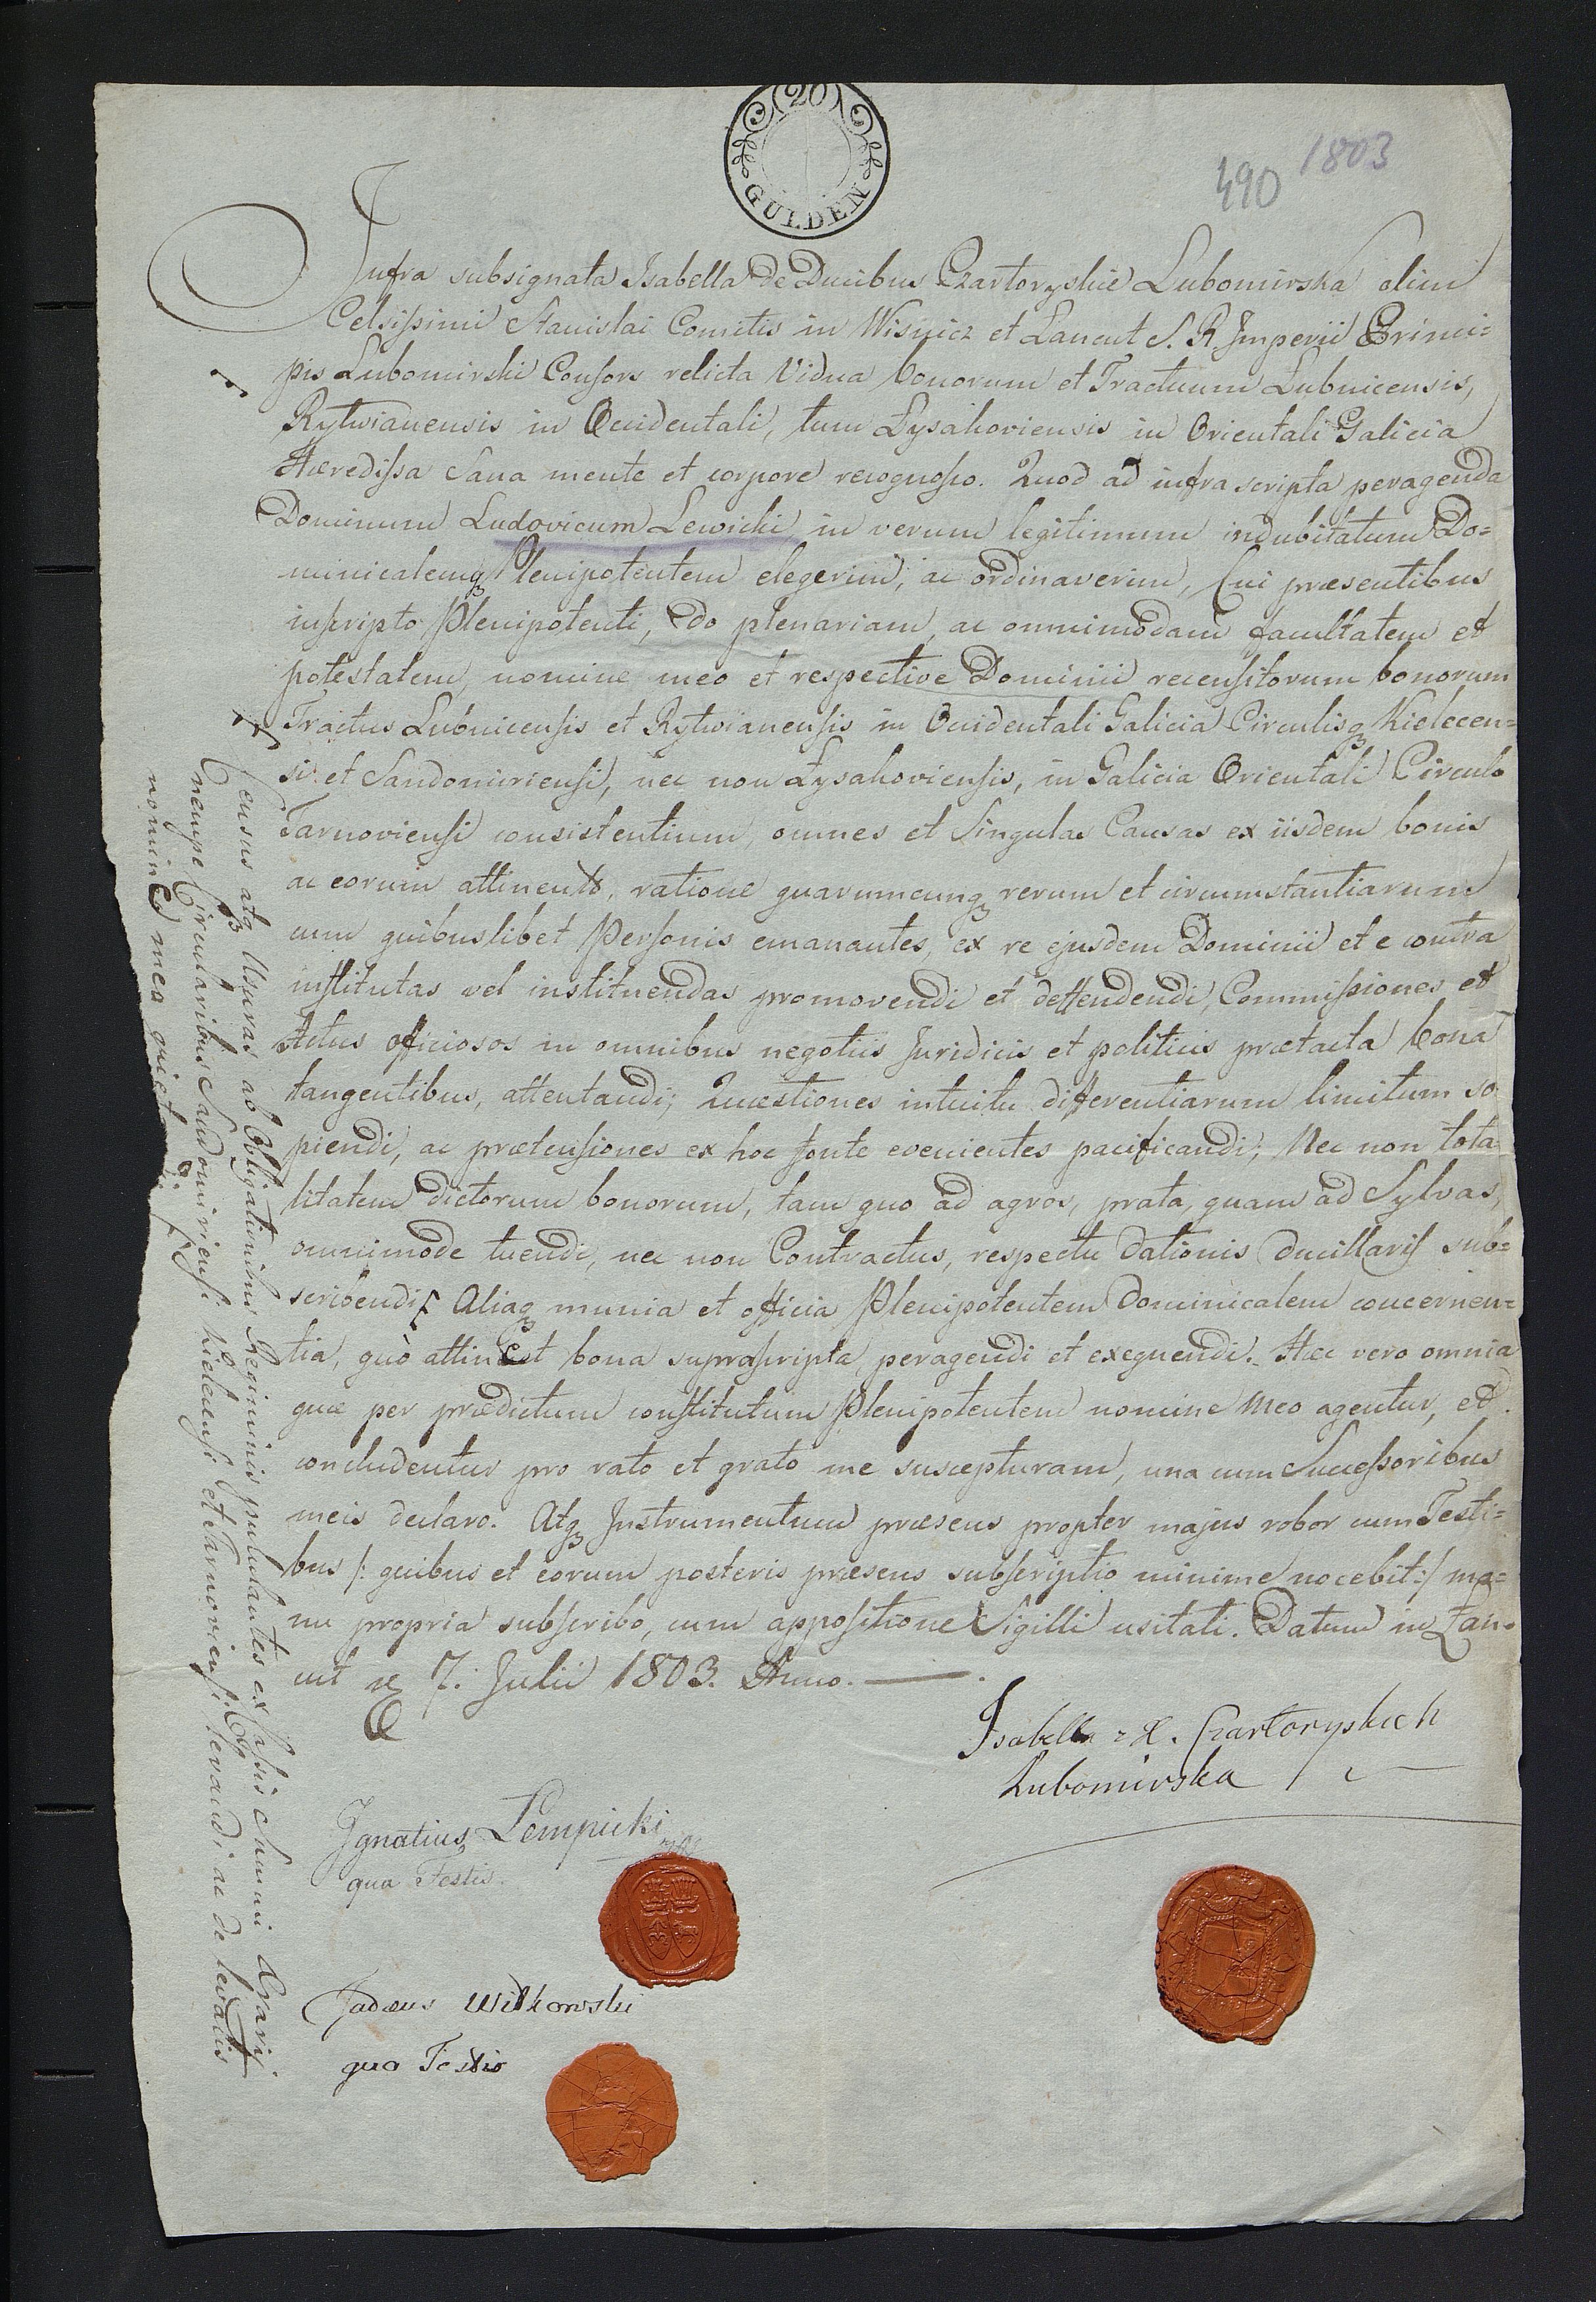 20
GULDEN
490 1803
Infra subsignata Isabella de Ducibus Czartoryskie Lubomirska olim
Celsissimi Stanislai Comitis in Wisnicz et Lancut S. R. Imperii Princi=
pis Lubomirski Consors relicta Vidua bonorum et Tractuum Lubnicensis,
Rytwianensis in Occidentali, tum Łysakoviensis in Orientali Galicia
Hæredissa Sana mente et corpore recognosco. Quod ad infra scripta peragenda
Dominum Ludovicum Lewicki in verum legitimum indubitatum Do=
minicalemq Plenipotentem elegerim, ac ordinaverim, Cui præsentibus
inscripto Plenipotenti, do plenariam, ac omnimodam facultatem et
potestatem, nomine meo et respective Dominii recensitorum bonorum
Tractus Lubnicensis et Rytwianensis in Occidentali Galicia Circulisq Kielecen=
si et Sandomiriensi, nec non Łysakoviensis, in Galicia Orientali Circulo
Tarnoviensi consistentium, omnes et Singulas Causas ex iisdem bonis
ac eorum attinentiis, ratione quarumcunq rerum et circumstantiarum
cum quibuslibet Personis emanantes, ex re ejusdem Dominii et e contra
institutas vel instituendas promovendi et deffendendi, Commissiones et
Actus officiosos in omnibus negotiis Juridicis et politicis prætacta bona
tangentibus, attentandi; Quæstiones intuitu differentiarum limitum so
piendi, ac prætensiones ex hoc fonte evenientes pacificandi; Nec non tota
litatem dictorum bonorum, tam quo ad agros, prata, quam ad Sylvas,
omnimode tuendi, nec non Contractus, respectu dationis Ducillaris sub=
scribendi Aliaq munia et officia Plenipotentem Dominicalem concernen=
tia, quò attinet bona suprascripta peragendi et exequendi. Hæc vero omnia
quæ per prædictum constitutum Plenipotentem nomine meo agentur, et
concludentur pro rato et grato me suscepturam, una cum Successoribus
meis declaro. Atq Instrumentum præsens propter majus robor cum Testi=
bus /: quibus et eorum posteris præsens subscriptio minime nocebit :/ ma=
nu propria subscribo, cum appositione Sigilli usitati. Datum in Łan=
cut 7. Julii 1803. Anno.
Isabella z X. Czartoryskich
Lubomirska
Ignatius Lempicki
qua Testis.
Tadæus Witkowski
qua Testis
Census atq Usuras ab Obligationibus Regiminis pullulantes ex Cassis Summi Ærarii
nempe Circularibus Sandomiriensi Kielcensi et Tarnoviensi levandi ac de levatis
nomine meo quietandi